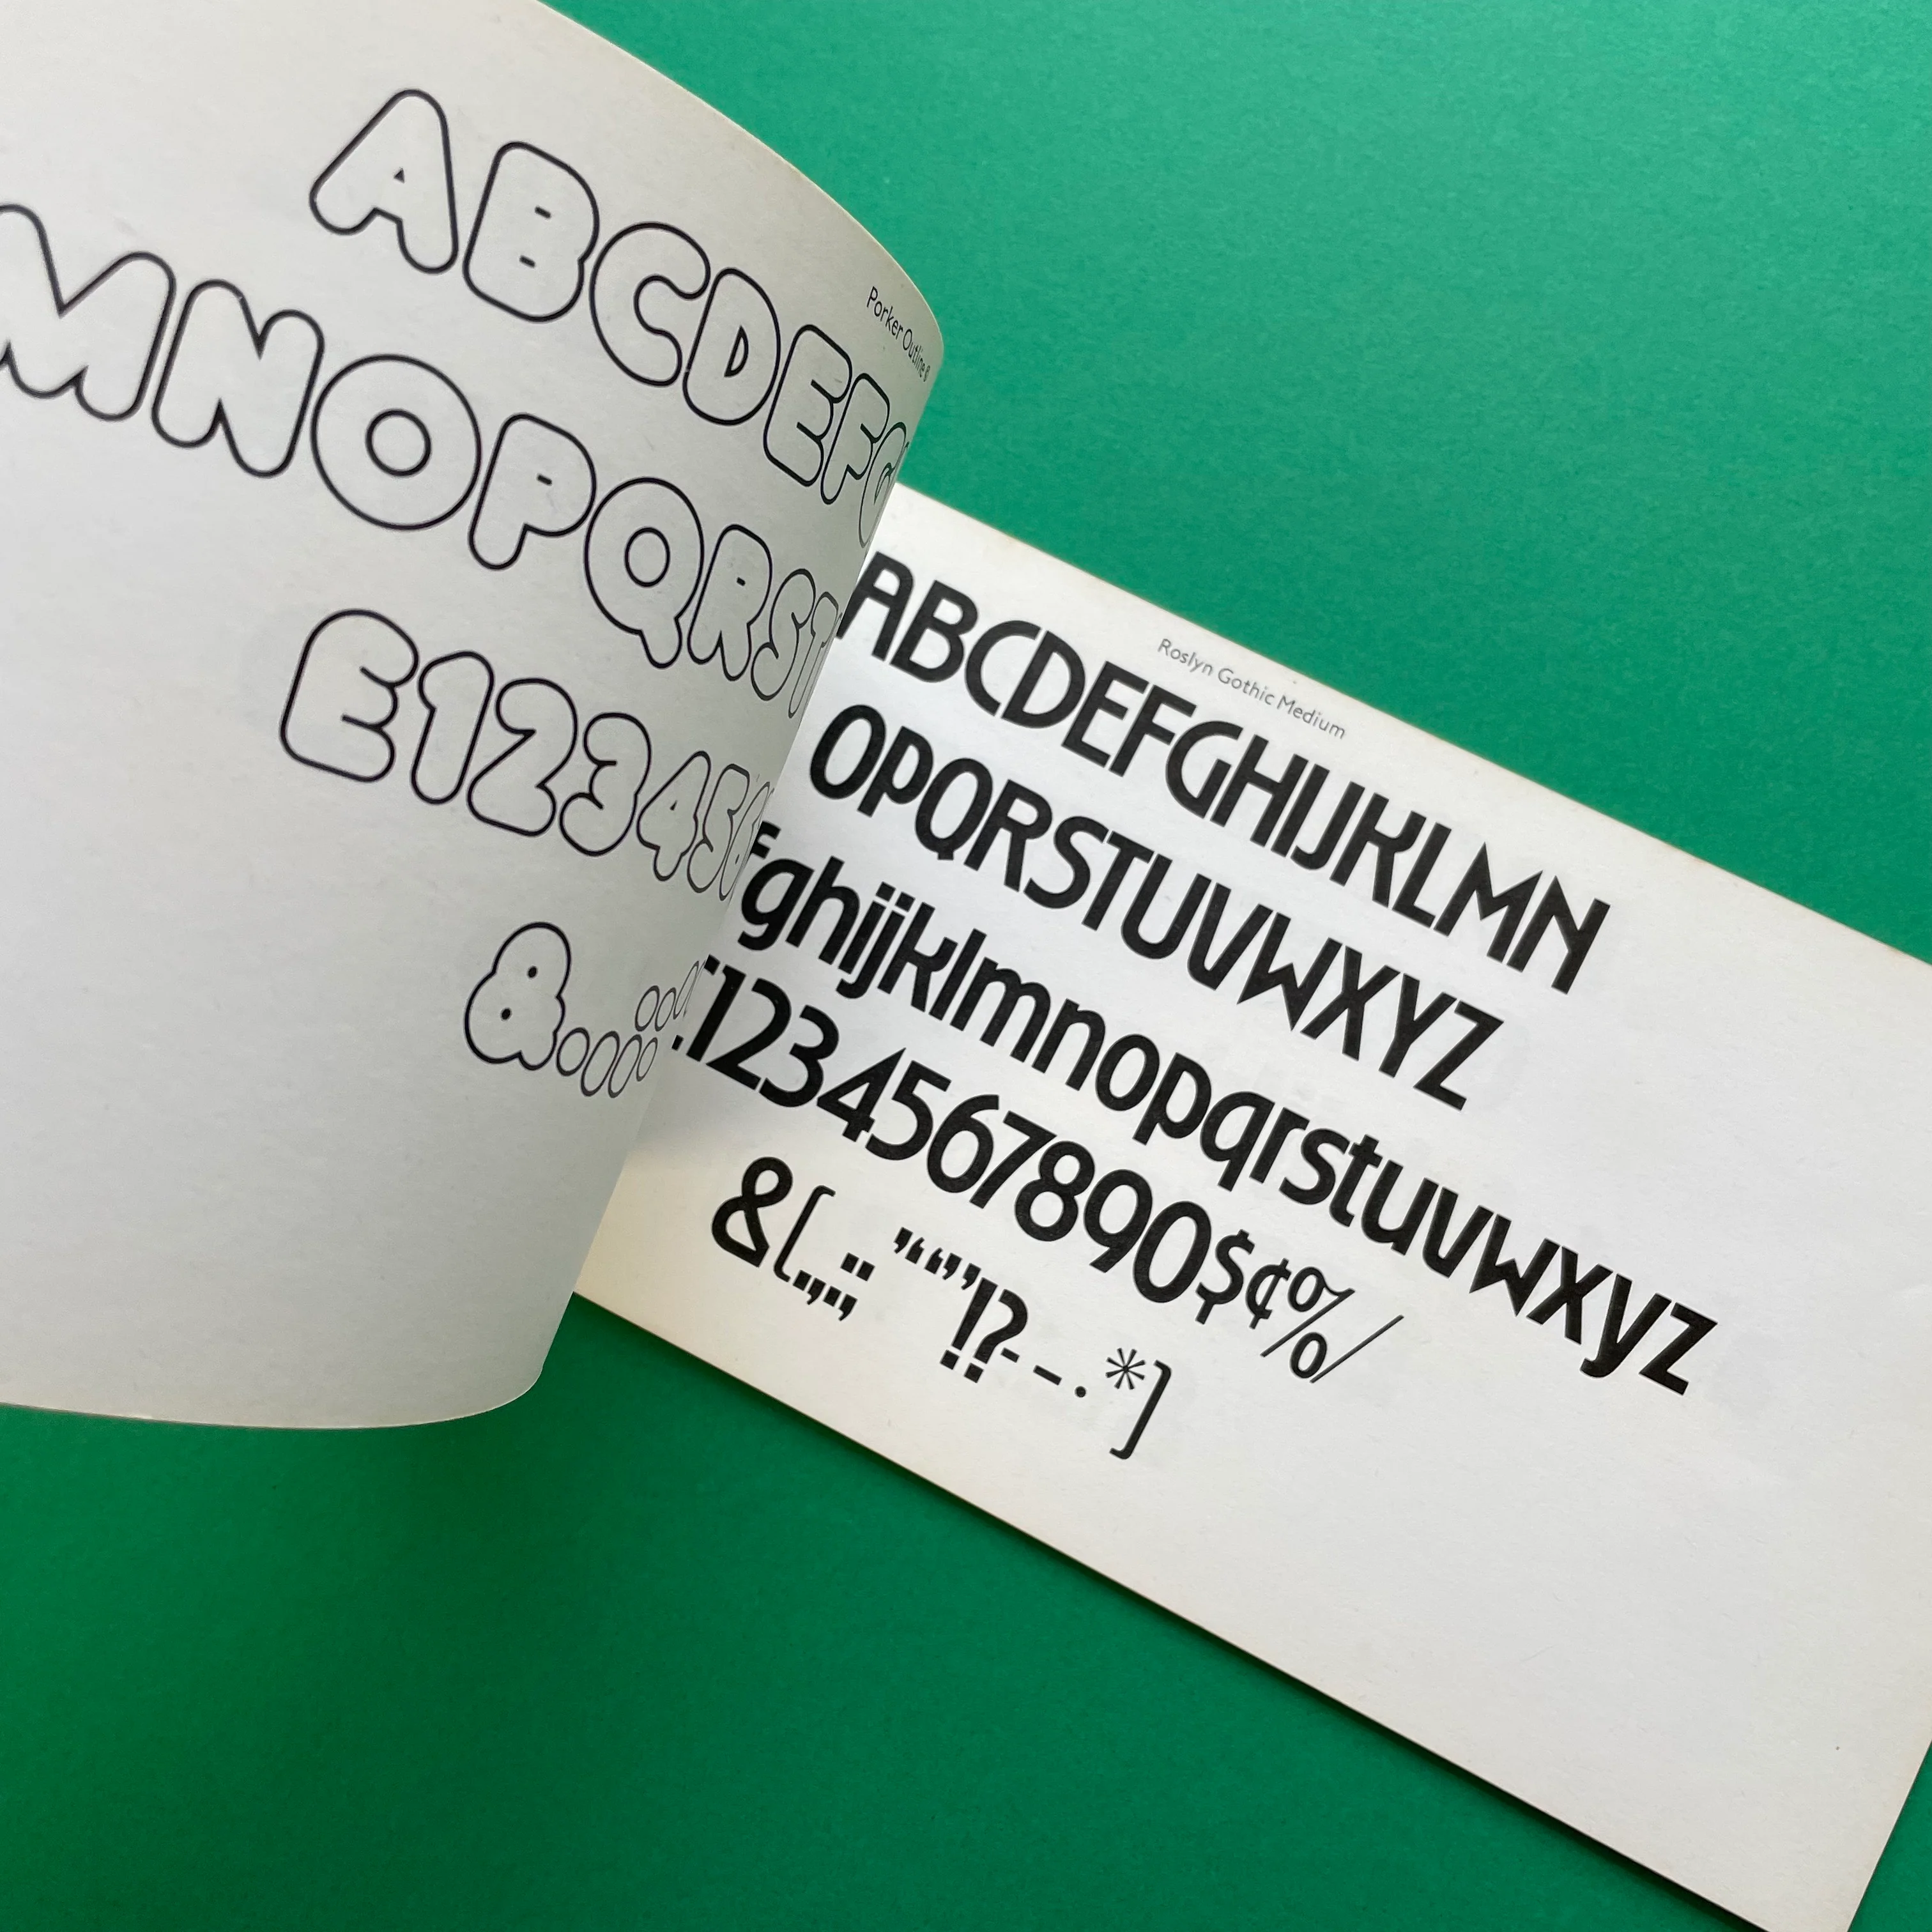 Porker Outline
ABCDEFG
MNOPQRST
E123456
&.,:;
Roslyn Gothic Medium
ABCDEFGHIJKLMN
OPQRSTUVWXYZ
fghijklmnopqrstuvwxyz
1234567890$¢%/
&(.,:;’“”!?--·*]